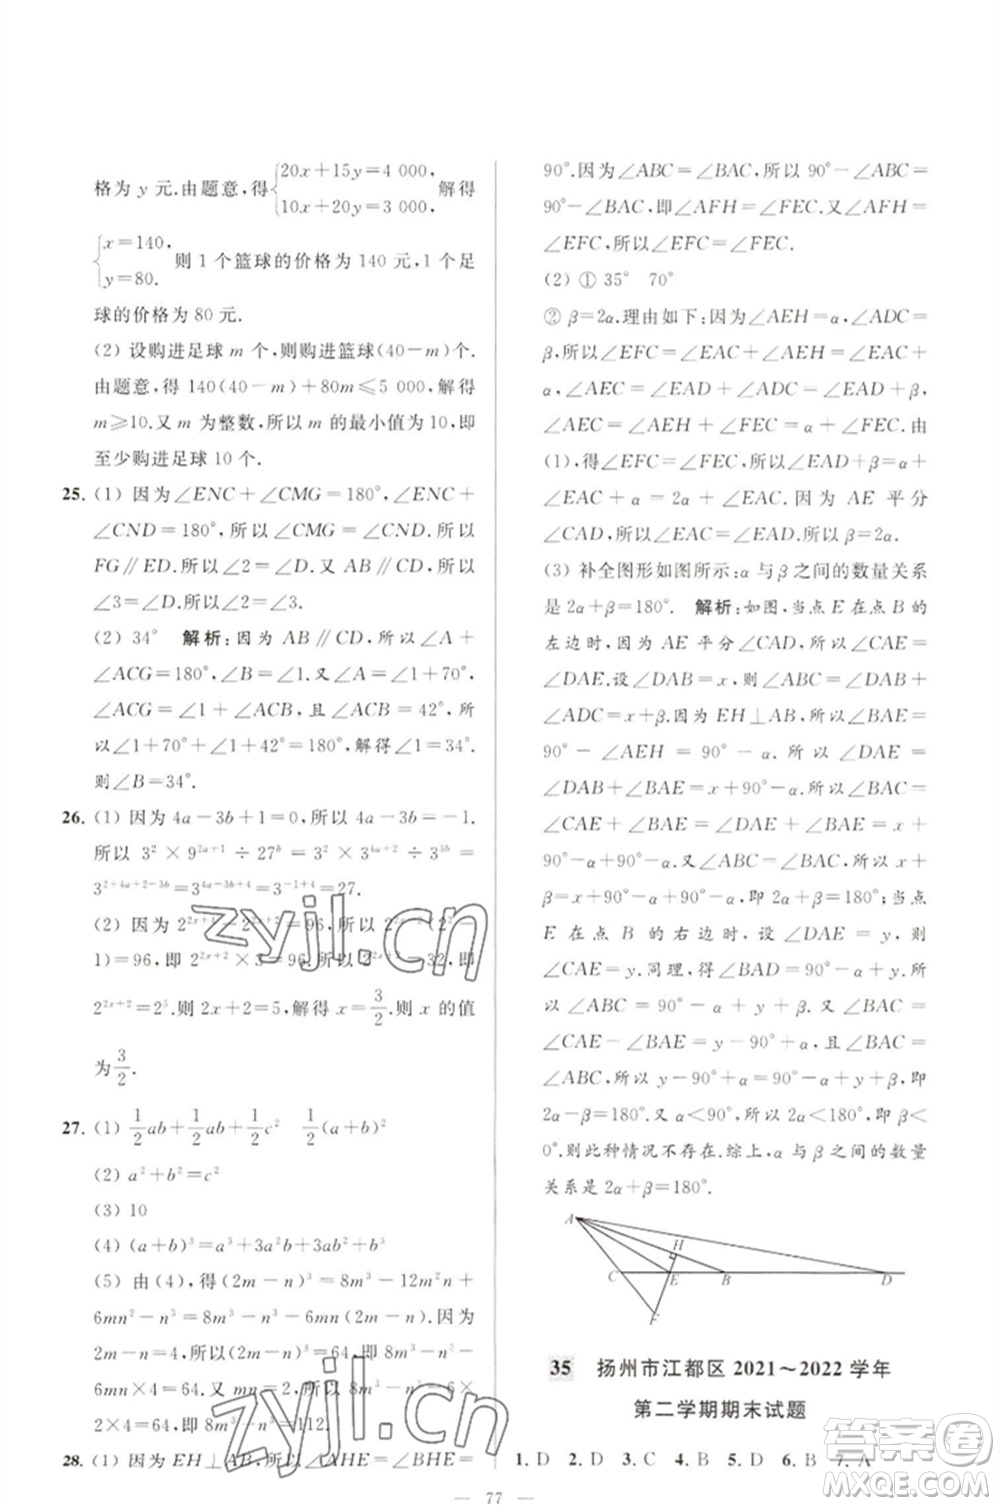 格为 y 元.由题意,得{20x+15y=4 000, 10x+20y=3 000, 解得
{x=140, y=80. 则 1 个篮球的价格为 140 元,1 个足
球的价格为 80 元.
(2) 设购进足球 m 个,则购进篮球(40-m)个.
由题意,得 140(40-m)+80m≤5 000,解得
m≥10.又 m 为整数,所以 m 的最小值为10,即
至少购进足球 10 个.
25. (1) 因为∠ENC+∠CMG=180°,∠ENC+
∠CND=180°,所以∠CMG=∠CND.所以
FG∥ED.所以∠2=∠D.因为AB∥CD,所以
∠3=∠D.所以∠2=∠3.
(2) 34° 解析:因为 AB∥CD,所以∠A+
∠ACG=180°,∠B=∠1.又∠A=∠1+70°,
∠ACG=∠1+∠ACB,且∠ACB=42°,所
以∠1+70°+∠1+42°=180°,解得∠1=34°.
则∠B=34°.
26. (1) 因为 4a-3b+1=0,所以 4a-3b=-1.
所以 3²×9²ᵃ⁺¹÷27ᵇ=3²×3⁴ᵃ⁺²÷3³ᵇ=
3²⁺⁴ᵃ⁺²⁻³ᵇ=3⁴ᵃ⁻³ᵇ⁺⁴=3⁻¹⁺⁴=3³=27.
(2) 因为 2²ˣ⁺⁴-2²ˣ⁺²=96,所以 2²ˣ⁺²(2²-
1)=96,即 2²ˣ⁺²×3=96,所以 2²ˣ⁺²=32,即
2²ˣ⁺²=2⁵.所以 2x+2=5,解得 x=3/2.则 x 的值
为3/2.
27. (1) 1/2ab+1/2ab+1/2c² 1/2(a+b)²
(2) a²+b²=c²
(3) 10
(4) (a+b)³=a³+3a²b+3ab²+b³
(5) 由(4),得(2m-n)³=8m³-12m²n+
6mn²-n³,所以 8m³-n³=(2m-n)³+12m²n-
6mn²=(2m-n)³+6mn(2m-n).因为
2m-n=4,mn=2,所以 8m³-n³=4³+6×
2×4=64+48=112.即8m³-n³=112.
28. (1) 因为 EH⊥AB,所以∠AHE=∠BHE=
90°.因为∠ABC=∠BAC,所以 90°-∠ABC=
90°-∠BAC,即∠AFH=∠FEC.又∠AFH=
∠EFC,所以∠EFC=∠FEC.
(2) ① 35° 70°
② β=2α.理由如下:因为∠AEH=α,∠ADC=
β,所以∠FEC=∠EAC+∠ACE=∠EAC+
α,∠AEC=∠EAD+∠ADC=∠EAD+β,
∠AEC=∠AEH+∠FEC=α+∠FEC.由
(1),得∠EFC=∠FEC.所以∠EAD+β=α+
∠FEC=α+α+∠EAC=2α+∠EAC.因为 AE 平分
∠CAD,所以∠EAD=∠EAC.所以β=2α.
(3) 补全图形如图所示;α与β之间的数量关系
是 2α+β=180° 解析:如图,当点 E 在点 B 的
左边时,因为 AE 平分∠CAD,所以∠CAE=
∠DAE.设∠DAB=x,则∠ABC=∠DAB+
∠ADC=x+β.因为EH⊥AB,所以∠BAE=
90°-∠AEH=90°-α.所以∠DAE=
∠DAB+∠BAE=x+90°-α.所以∠BAC=
∠BAE+∠CAE=∠BAE+∠DAE=90°-α+
x+90°-α.又∠ABC=∠BAC,所以 x+
β=90°-α+x+90°-α,即 2α+β=180°;当点
E 在点 B 的右边时,设∠DAE=y,则
∠CAE=y.同理,得∠BAD=90°-α+y,
∠ABC=β+90°-α+y,所以∠BAC=
∠CAE-∠BAE=y-90°+α.又∠ABC=
∠BAC,所以 y-90°+α=β+90°-α+y,即
2α-β=180°.又 α<90°,所以 2α<180°,即β<
0°.则此种情况不存在.综上,α与β之间的数量
关系是 2α+β=180°.
A
H
C E B D
F
35 扬州市江都区 2021~2022 学年
第二学期期末试题
1. D 2. D 3. C 4. B 5. D 6. B 7. A
— 77 —
zyjl.cn
zyjl.cn
答案圈
MXQE.COM